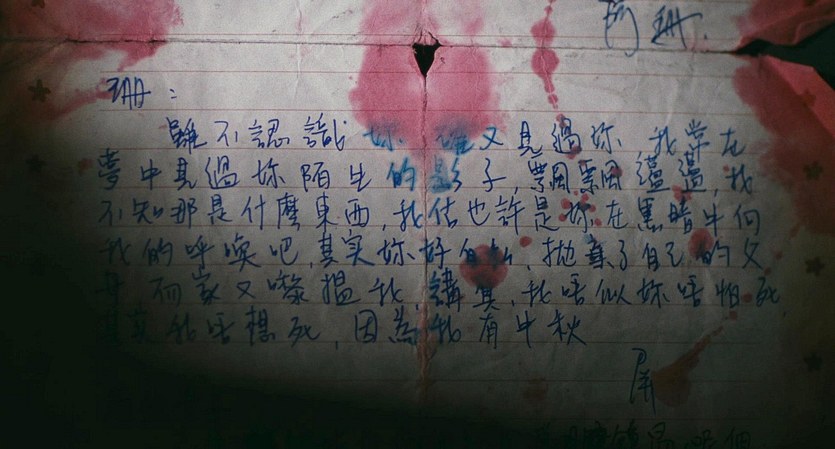 阿珊.
珊：
雖不認識妳 雖又見過妳 我常在
夢中見過妳陌生的影子,飄飄蘯蘯,我
不知那是什麼東西,我估也許是妳在黑暗中向
我的呼喚吧,其實妳好自私,拋棄了自己的父
母 而家又嚟搵我,講真,我唔似妳唔怕死,
其實我唔想死,因為我有中秋
屏